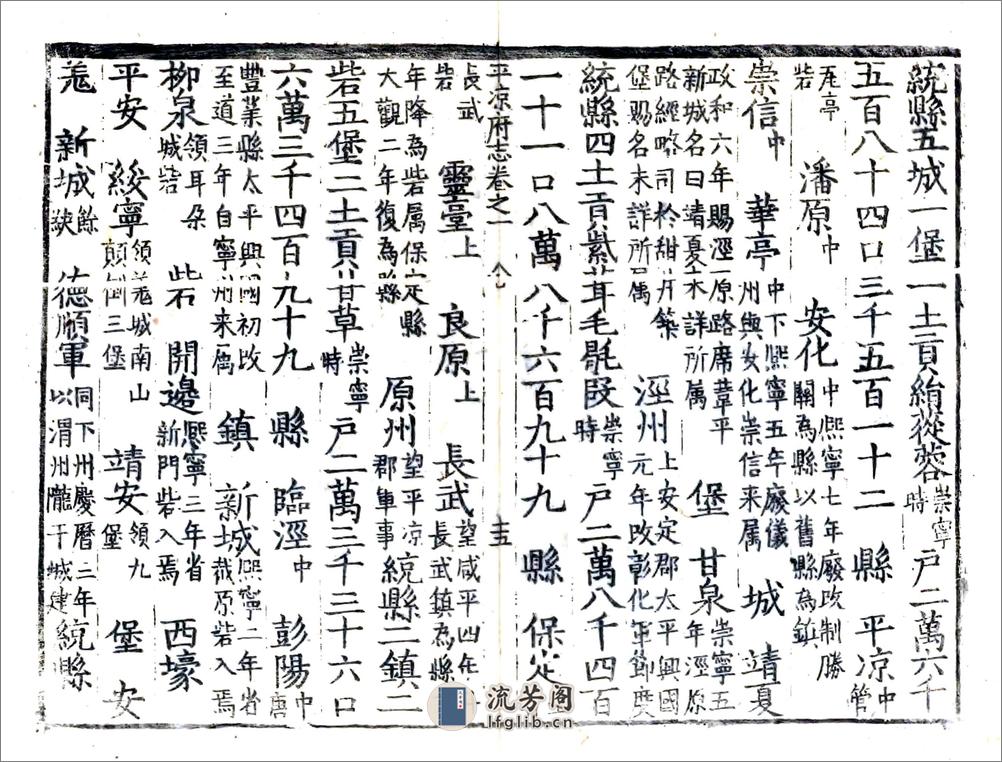 統縣五城一堡一土貢絹蓯蓉崇寧時戶二萬六千
五百八十四口三千五百一十二 縣 平凉中管
瓦亭砦 潘原中 安化中熙寧七年廢改制勝關為縣以舊縣為鎮
崇信中 華亭中下熙寧五年廢儀州與安化崇信来属 城 靖夏
政和六年賜涇原路席葦平新城名曰靖夏未詳所属 堡 甘泉崇寧五年涇原
路經略司於甜井築堡賜名未詳所属 涇州上安定郡太平興國元年改彰化軍節度
統縣四土貢紫茸毛毼段崇寧時 戶二萬八千四百
一十一口八萬八千六百九十九 縣 保定
平凉府志卷之一 十五
長武砦 靈臺上 良原上 長武望咸平四年長武鎮為縣
年降為砦属保定縣大觀二年復為縣 原州望平凉郡軍事統縣二鎮二
砦五堡二土貢甘草崇寧時 戶二萬三千三十六口
六萬三千四百九十九 縣 臨涇中 彭陽中唐
豐業縣太平興國初改至道三年自寧州来属 鎮 新城熙寧二年省截原砦入焉
柳泉領耳朵城砦 砦 開邊熙寧三年省新門砦入焉 西壕
平安 綏寧領羗城南山顛倒三堡 靖安領九堡 堡 安
羗 新城餘缺 德順軍同下州慶曆二年以渭州隴干城建統縣
流芳阁
lfglib.cn